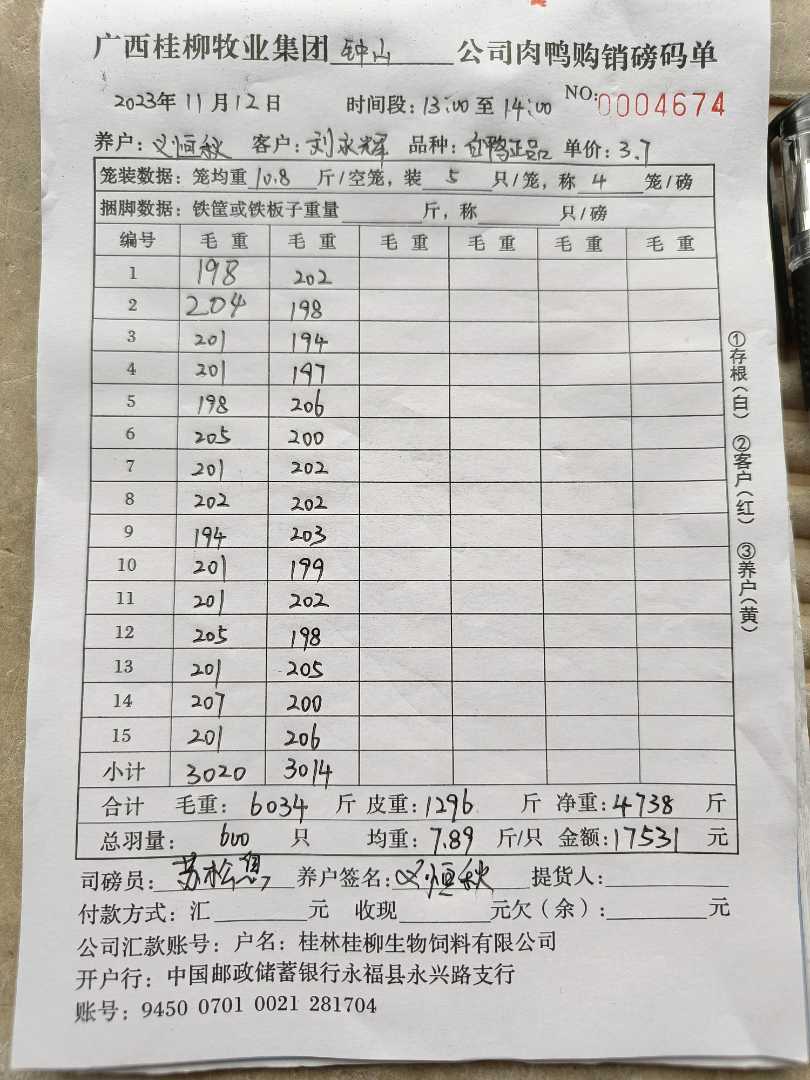 广西桂柳牧业集团 钟山 公司肉鸭购销磅码单
2023年 11月 12日 时间段: 13:00 至 14:00 NO: 0004674
养户: 义恒秋 客户: 刘永辉 品种: 白鸭正品 单价: 3.7
笼装数据: 笼均重 10.8 斤/空笼, 装 5 只/笼, 称 4 笼/磅
捆脚数据: 铁筐或铁板子重量 斤, 称 只/磅
编号 毛重 毛重 毛重 毛重 毛重 毛重
1 198 202
2 204 198
3 201 194
4 201 197
5 198 206
6 205 200
7 201 202
8 202 202
9 194 203
10 201 199
11 201 202
12 205 198
13 201 205
14 207 200
15 201 206
小计 3020 3014
合计 毛重: 6034 斤 皮重: 1296 斤 净重: 4738 斤
总羽量: 600 只 均重: 7.89 斤/只 金额: 17531 元
司磅员: 苏松 养户签名: 义恒秋 提货人:
付款方式: 汇 元 收现 元欠(余): 元
公司汇款账号: 户名: 桂林桂柳生物饲料有限公司
开户行: 中国邮政储蓄银行永福县永兴路支行
账号: 9450 0701 0021 281704
①存根(白) ②客户(红) ③养户(黄)